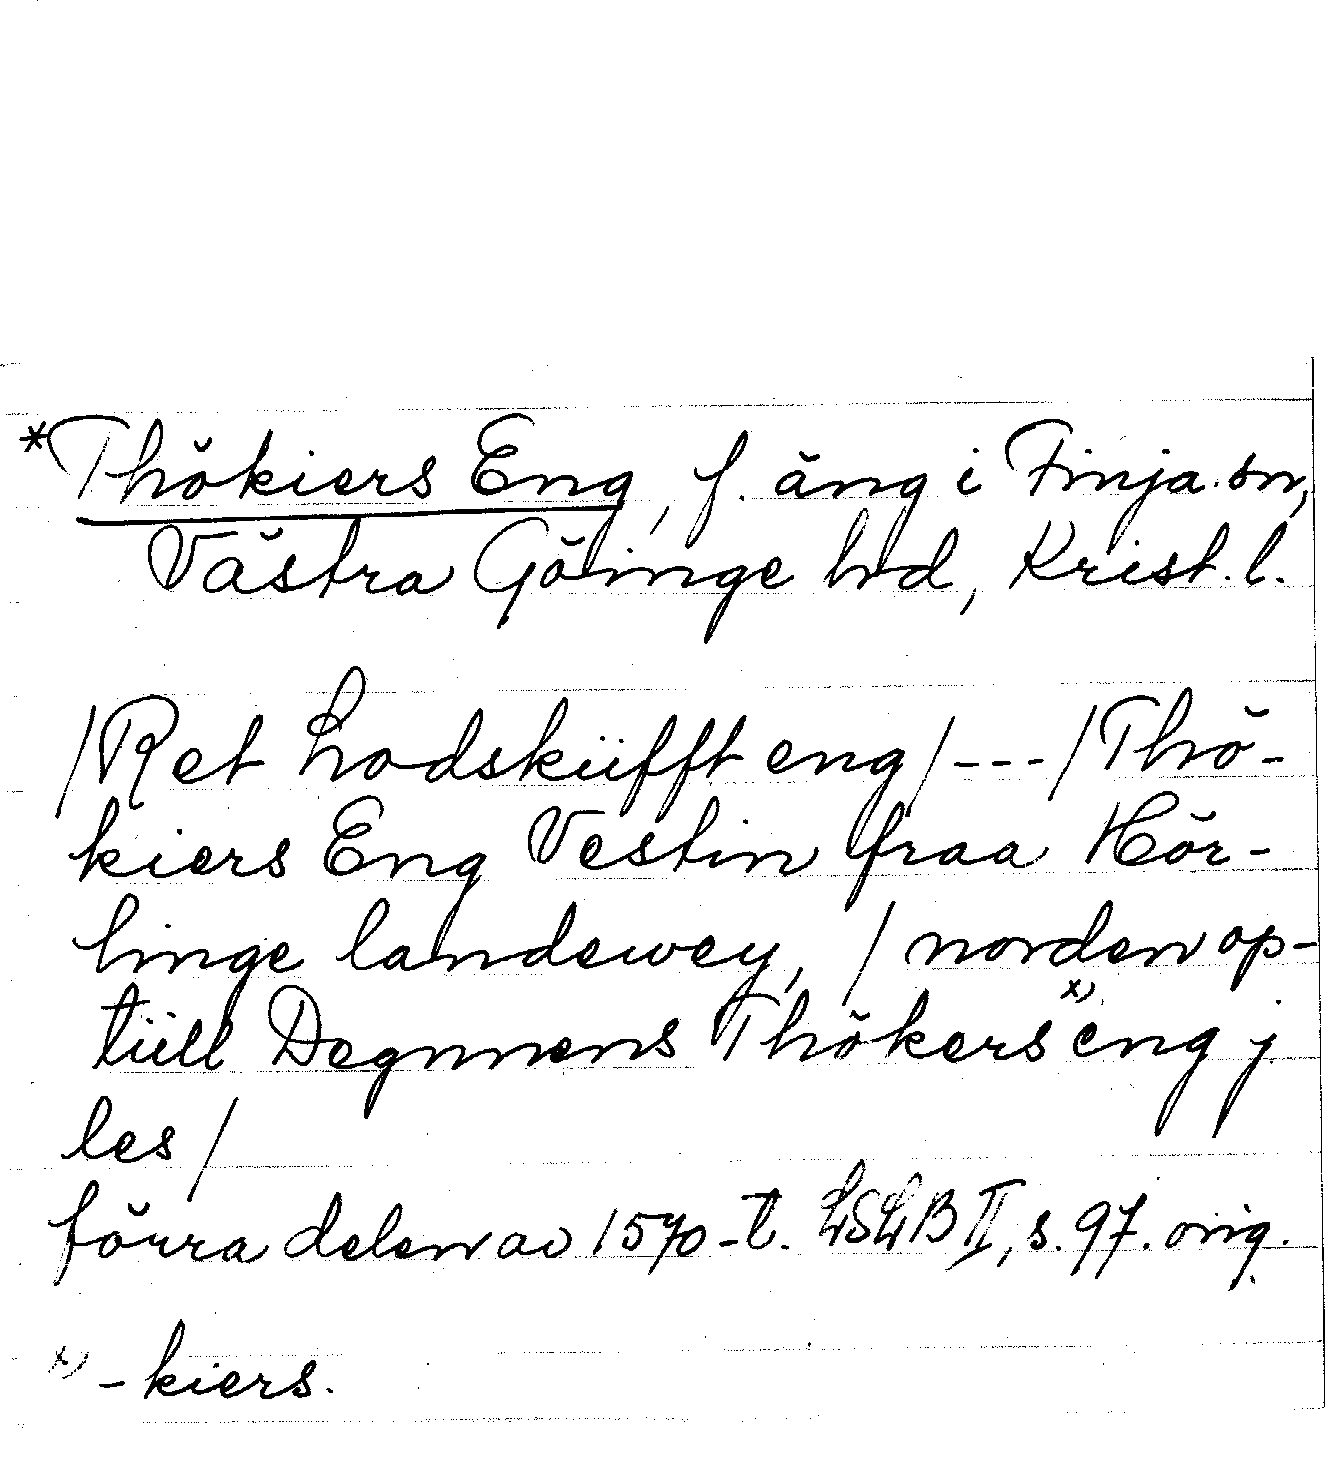 *Thökiers Eng, f. äng i Finja sn,
Västra Göinge hd, Krist. l.
/Ret Lodskiifft eng/---/Thö-
kiers Eng Vestin fraa Hör-
linge landewey, / norden op-
tiill Degnnens Thökers x) eng j
les /
förra delen av 1570-t. LSLB II, s. 97. orig.
x) -kiers.